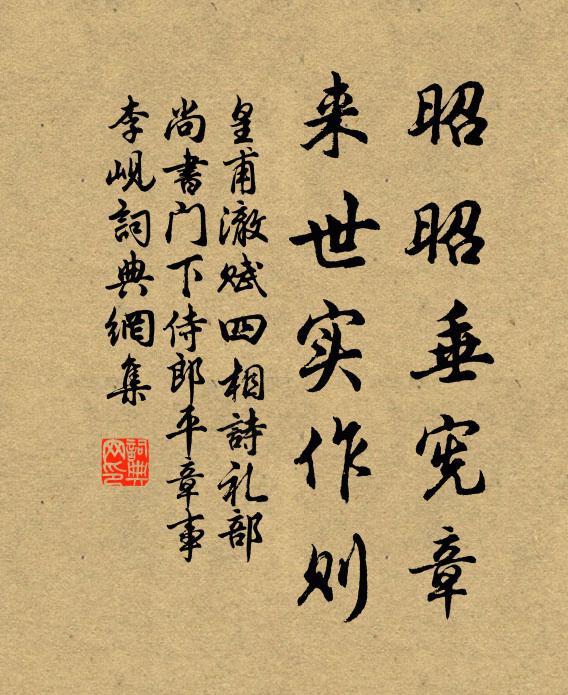 昭昭垂宪章
来世实作则
皇甫澈赋四相詩礼部
尚書门下侍郎平章事
李峴詞典網集
詞典网印